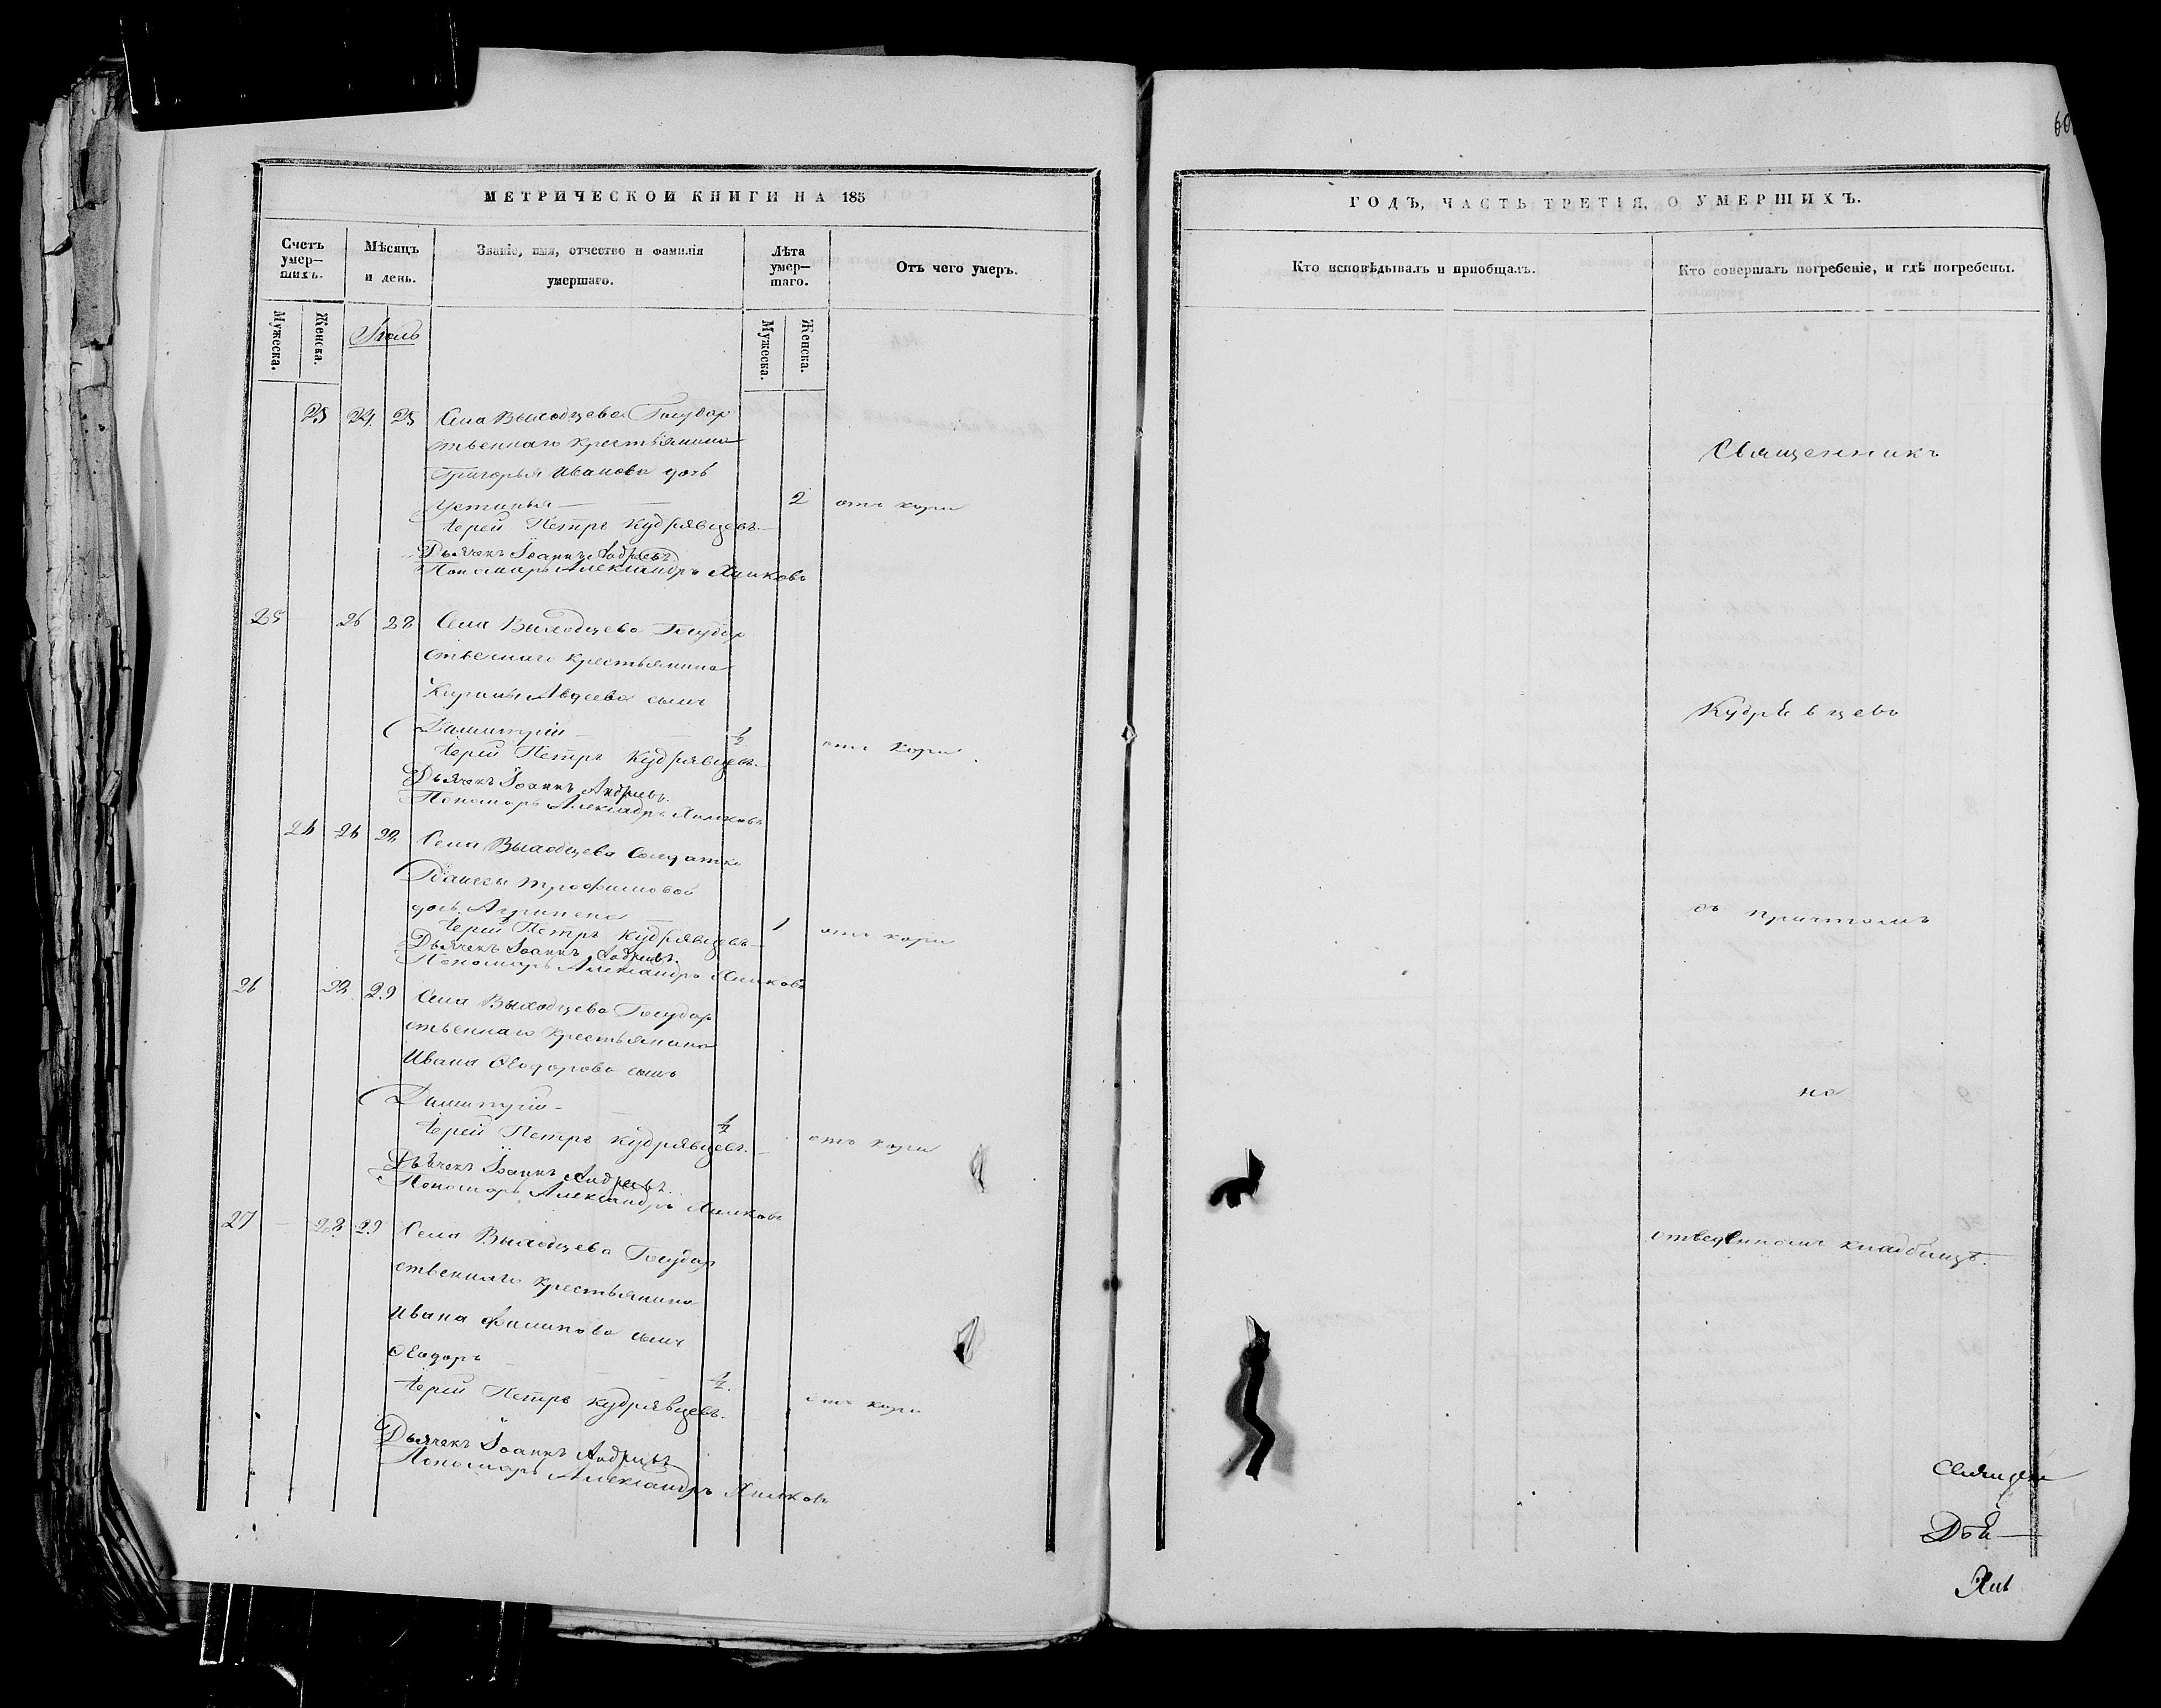 МЕТРИЧЕСКОЙ КНИГИ НА 185
Счетъ умер-
шихъ.
Мѣсяцъ
и день.
Званіе, имя, отчество и фамилія
умершаго.
Лѣта
умер-
шаго.
Отъ чего умеръ.
Мужеска.
Женска.
Мужеска.
Женска.
Іюль
25 24 25 Села Выходцева Государ
ственнаго крестьянина
Григорья Иванова дочь
Устинья 2 отъ кори
Іерей Петръ Кудрявцевъ.
Дьячекъ Іоаннъ Андреевъ
Пономарь Александръ Хилковъ
25 26 28 Села Выходцева Государ
ственнаго крестьянина
Авдеева сынъ
Димитрій 1/2 отъ кори
Іерей Петръ Кудрявцевъ.
Дьячекъ Іоаннъ Андреевъ.
Пономарь Александръ Хилковъ
26 26 Села Выходцева Солдатки
Трофимовой
дочь Агрипена 1 отъ кори
Іерей Петръ Кудрявцевъ
Дьячекъ Іоаннъ Андреевъ.
Пономарь Александръ Хилковъ
26 29 Села Выходцева Государ
ственнаго крестьянина
Ивана Ѳеодорова сынъ
Димитрій 1/2
Іерей Петръ Кудрявцевъ. отъ кори
Дьячекъ Іоаннъ Андреевъ.
Пономарь Александръ Хилковъ
27 28 29 Села Выходцева Государ
ственнаго крестьянина
Ивана Филипова сынъ
Ѳеодоръ 1/2.
Іерей Петръ Кудрявцевъ. отъ кори
Дьячекъ Іоаннъ Андреевъ
Пономарь Александръ Хилковъ
ГОДЪ, ЧАСТЬ ТРЕТІЯ, О УМЕРШИХЪ.
Кто исповѣдывалъ и пріобщалъ.
Кто совершалъ погребеніе, и гдѣ погребены.
Священникъ
Кудрявцевъ
съ причтомъ
на
отведенномъ кладбищѣ.